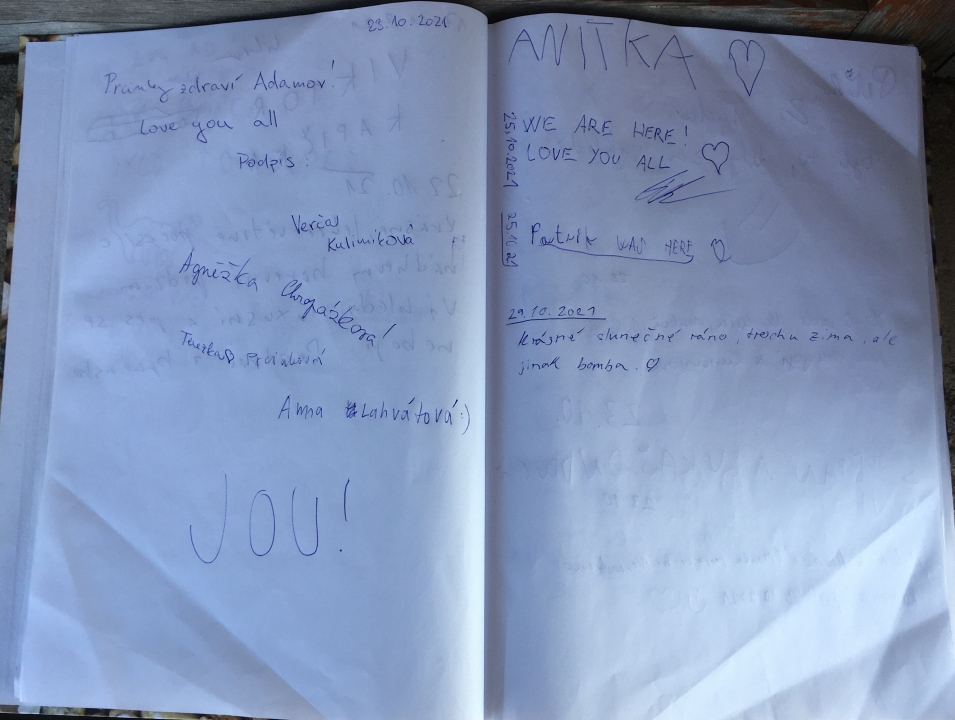 23.10.2021
zdraví Adamov!
Love you all
Podpis:
Verčas
Kulimiková
Agnéžka
Chropáčková!
Anna Lahvátová :)
JOU!
ANITKA ♡
25.10.2021
WE ARE HERE!
LOVE YOU ALL ♡
25.10.21
WAS HERE ♡
29.10.2021
Krásné slunečné ráno, trochu zima, ale
jinak bomba. ♡